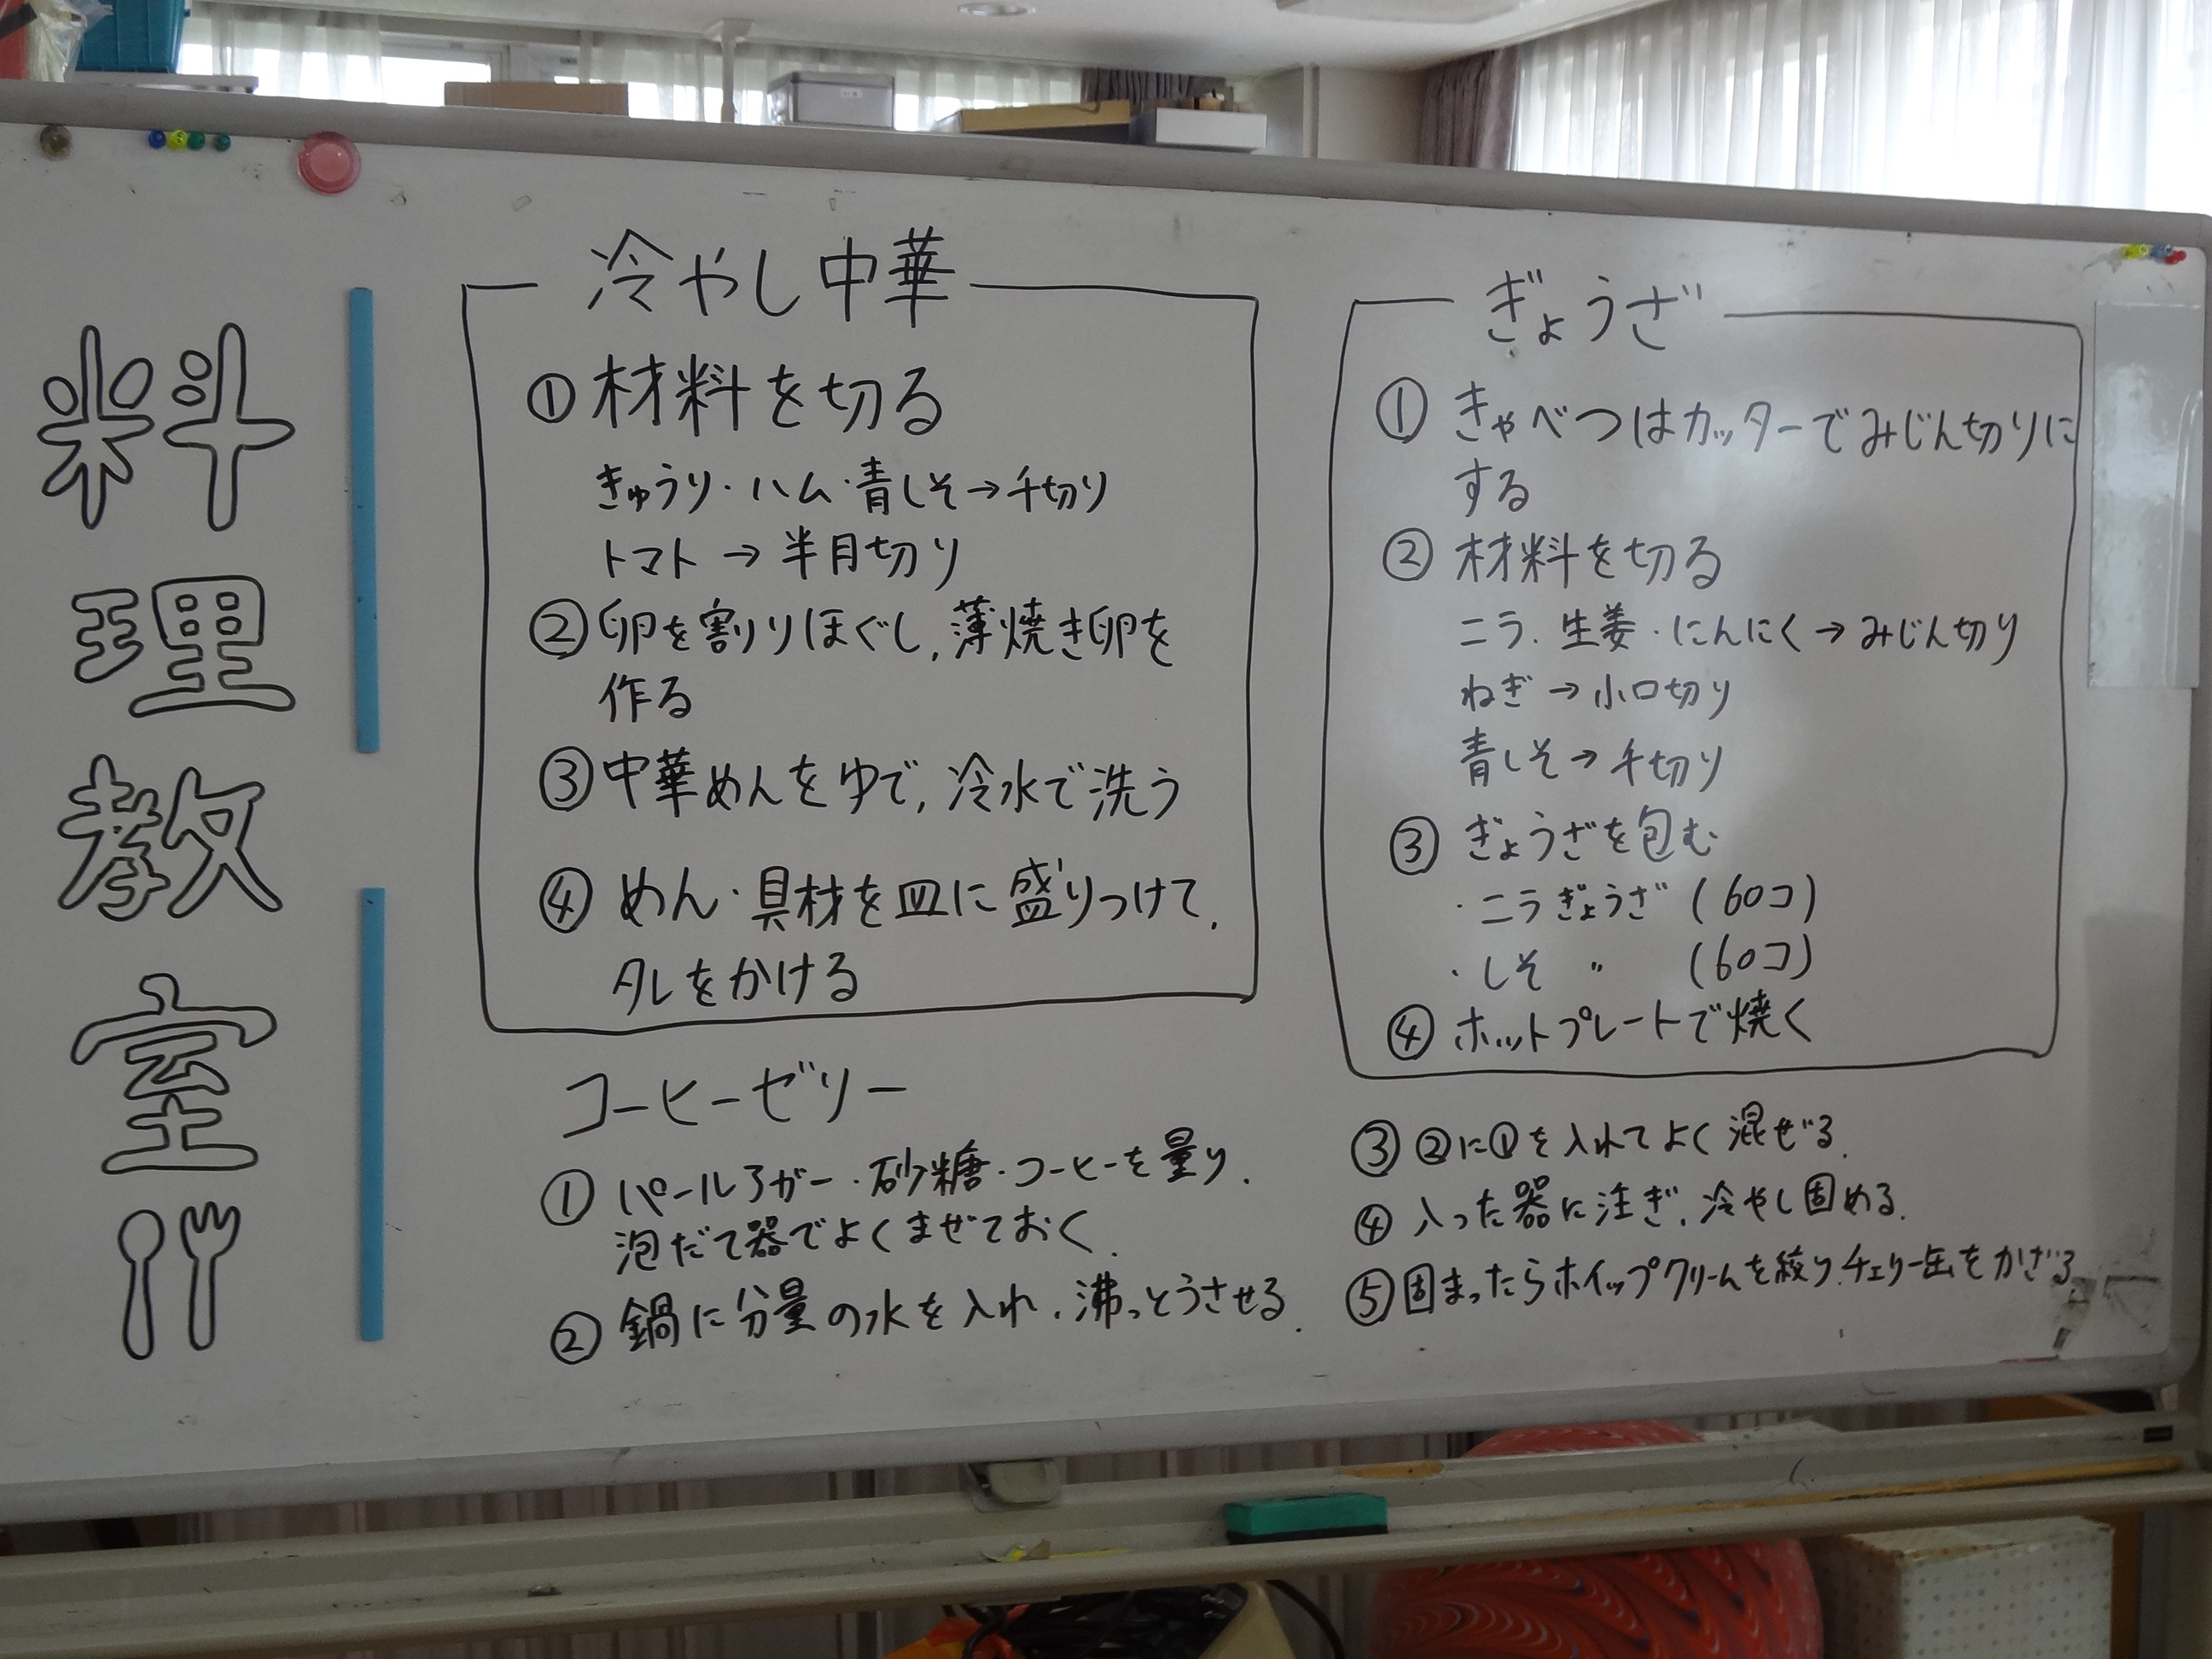 料理教室
冷やし中華
①材料を切る
きゅうり・ハム・青しそ→千切り
トマト→半月切り
②卵を割りほぐし,薄焼き卵を
作る
③中華めんをゆで,冷水で洗う
④めん・具材を皿に盛りつけて,
タレをかける
ぎょうざ
①きゃべつはカッターでみじん切りに
する
②材料を切る
ニラ・生姜・にんにく→みじん切り
ねぎ→小口切り
青しそ→千切り
③ぎょうざを包む
・ニラぎょうざ(60コ)
・しそ 〃 (60コ)
④ホットプレートで焼く
コーヒーゼリー
①パールアガー・砂糖・コーヒーを量り,
泡だて器でよくまぜておく.
②鍋に分量の水を入れ,沸っとうさせる.
③②に①を入れてよく混ぜる.
④入った器に注ぎ,冷やし固める.
⑤固まったらホイップクリームを絞り,チェリー缶をかざる